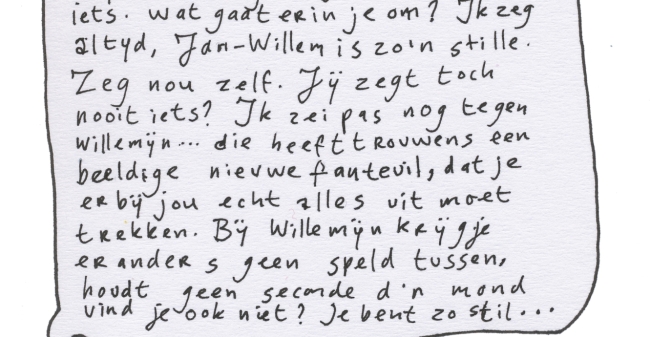 iets. Wat gaat er in je om? Ik zeg
altyd, Jan-Willem is zo'n stille.
Zeg nou zelf. Jij zegt toch
nooit iets? Ik zei pas nog tegen
Willemijn... die heeft trouwens een
beeldige nieuwe fauteuil, dat je
er bij jou echt alles uit moet
trekken. Bij Willemijn krijg je
er anders geen speld tussen,
houdt geen seconde d'n mond
vind je ook niet? Je bent zo stil...